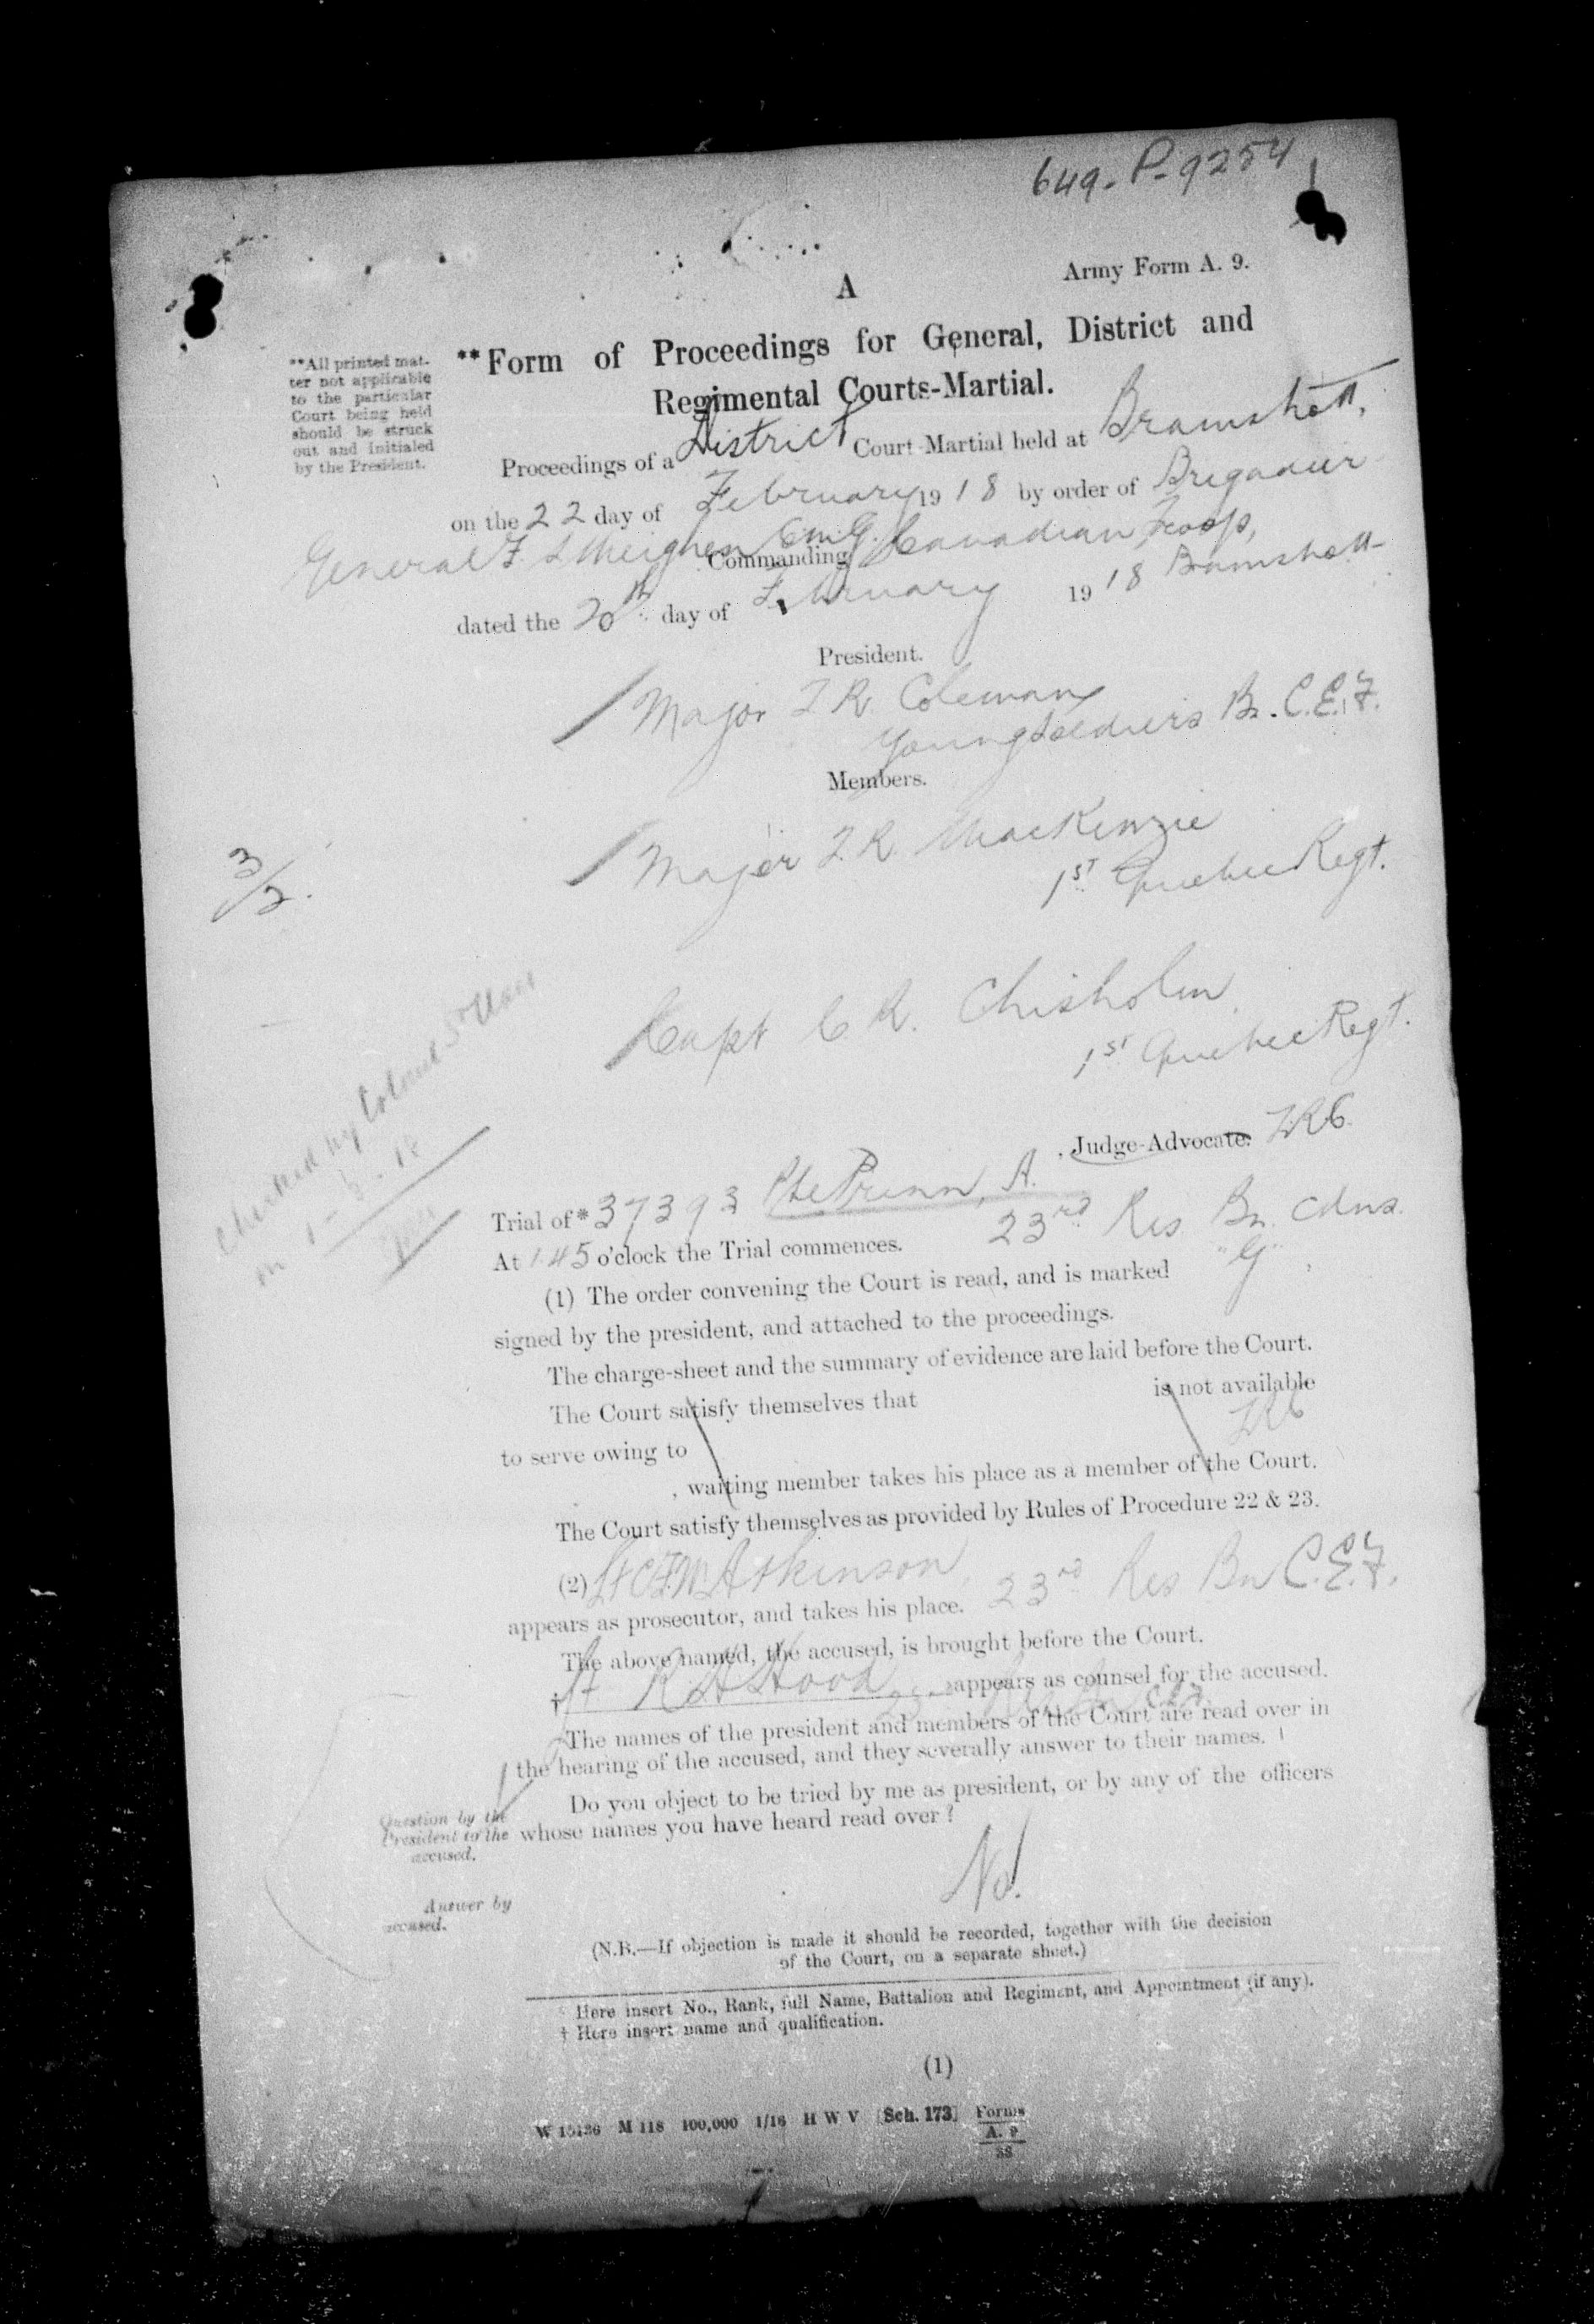 649-P-9254
Army Form A. 9.
A
**Form of Proceedings for General, District and
Regimental Courts-Martial.
**All printed mat-
ter not applicable
to the particular
Court being held
should be struck
out and initialed
by the President.
Proceedings of a District Court-Martial held at Bramshott,
on the 22 day of February 1918 by order of Brigadier
General F. S Meighen C.M.G. Commanding Canadian Troops,
dated the 20th day of February 1918 Bramshott
President.
Major Coleman
Young Soldiers Bn. C.E.F.
Members.
Major MacKenzie
1st Quebec Regt.
3/2.
Capt C R. Chisholm
1st Quebec Regt.
Checked by Colonel
on 1-3-18
Judge-Advocate.
Trial of * 37393 Pte Prinn, A.
23rd Res Bn. Cdns.
At 1.45 o'clock the Trial commences.
(1) The order convening the Court is read, and is marked "G",
signed by the president, and attached to the proceedings.
The charge-sheet and the summary of evidence are laid before the Court.
The Court satisfy themselves that is not available
to serve owing to
, waiting member takes his place as a member of the Court.
The Court satisfy themselves as provided by Rules of Procedure 22 & 23.
(2) Lt C.F.W. Atkinson, 23rd Res Bn C.E.F.
appears as prosecutor, and takes his place.
The above named, the accused, is brought before the Court.
† Lt R H Hood appears as counsel for the accused.
The names of the president and members of the Court are read over in
the hearing of the accused, and they severally answer to their names.
Question by the
President to the
accused.
Do you object to be tried by me as president, or by any of the officers
whose names you have heard read over ?
Answer by
accused.
No.
(N.B.—If objection is made it should be recorded, together with the decision
of the Court, on a separate sheet.)
* Here insert No., Rank, full Name, Battalion and Regiment, and Appointment (if any).
† Here insert name and qualification.
(1)
M 118 100,000 1/16 H W V [Sch. 173] Forms
A. 9